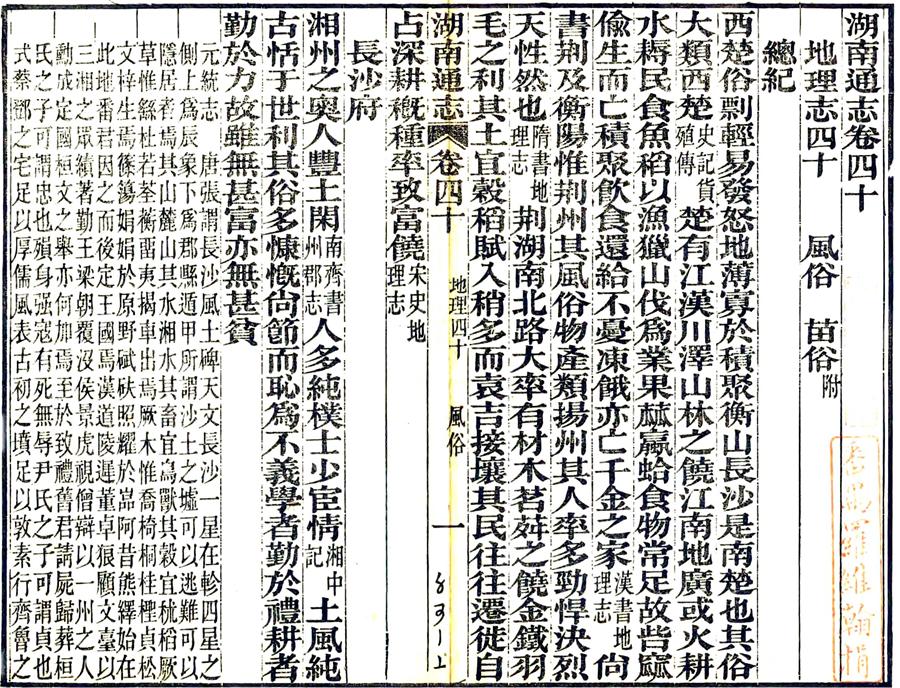 湖南通志卷四十
地理志四十　風俗　苗俗附
總紀
西楚俗剽輕易發怒地薄寡於積聚衡山長沙是南楚也其俗
大類西楚史記貨殖傳楚有江漢川澤山林之饒江南地廣或火耕
水耨民食魚稻以漁獵山伐爲業果蓏蠃蛤食物常足故呰窳
偸生而亡積聚飲食還給不憂凍餓亦亡千金之家漢書地理志尚
書荆及衡陽惟荆州其風俗物產類揚州其人率多勁悍決烈
天性然也隋書地理志荆湖南北路大率有材木茗荈之饒金鐵羽
毛之利其土宜穀稻賦入稍多而袁吉接壤其民往往遷徙自
湖南通志　卷四十　地理四十　風俗　一
占深耕穊種率致富饒宋史地理志
長沙府
湘州之奧人豐土閑南齊書州郡志人多純樸士少宦情湘中記土風純
古恬于世利其俗多慷慨尚節而恥爲不義學者勤於禮耕者
勤於力故雖無甚富亦無甚貧
元統志　唐張謂長沙風土碑天文長沙一星在軫四星之
側上爲辰象下爲郡縣遁甲所謂沙土之墟可以逃雖可以
隱居者焉其山麓山其水湘水其畜宜鳥獸其穀宜秫稻厥
草惟繇杜若荃蘅畱夷揭車出焉厥木惟喬椅桐桂檉貞松
文梓生焉篠簜娟娟於原野碔砆照耀於崑阿昔熊繹始在
此地番君因之而後定王國焉漢道陵遲董卓狼顧文臺以
三湘之眾績著勤王梁朝覆沒侯景虎視僧辯以一州之人
勳成定國桓文之舉亦何加焉至於致禮舊君請屍歸葬桓
氏之子可謂忠也殞身强寇有死無辱尹氏之子可謂貞也
式蔡鄱之宅足以厚儒風表古初之墳足以敦素行齊魯之
831上